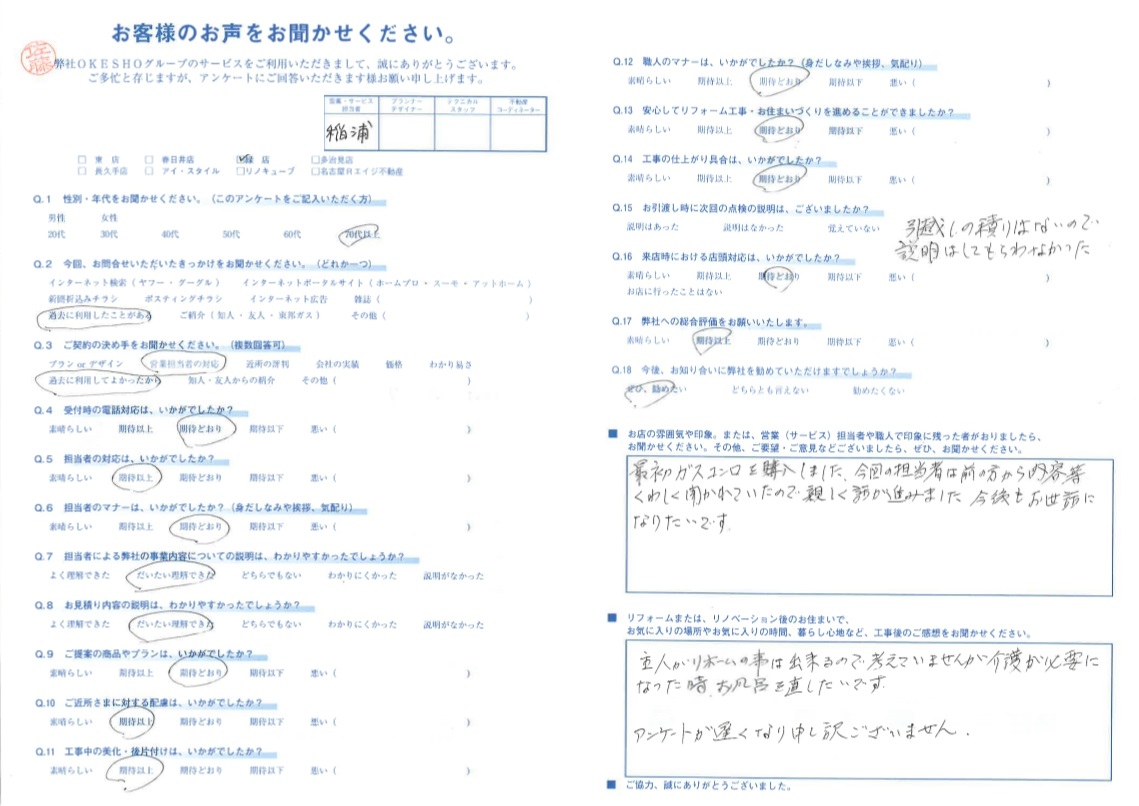 お客様のお声をお聞かせください。
佐藤
弊社OKESHOグループのサービスをご利用いただきまして、誠にありがとうございます。
ご多忙と存じますが、アンケートにご回答いただきます様お願い申し上げます。
営業・サービス担当者 プランナーデザイナー テクニカルスタッフ 不動産コーディネーター
稲浦
□ 東 店 □ 春日井店 ☑ 店 □多治見店
□ 長久手店 □ アイ・スタイル □リノキューブ □名古屋Rエイジ不動産
Q.1 性別・年代をお聞かせください。(このアンケートをご記入いただく方)
男性 女性
20代 30代 40代 50代 60代 70代以上
Q.2 今回、お問合せいただいたきっかけをお聞かせください。(どれか一つ)
インターネット検索(ヤフー・グーグル) インターネットポータルサイト(ホームプロ・スーモ・アットホーム)
新聞折込みチラシ ポスティングチラシ インターネット広告 雑誌( )
過去に利用したことがある ご紹介(知人・友人・東邦ガス) その他( )
Q.3 ご契約の決め手をお聞かせください。(複数回答可)
プラン or デザイン 営業担当者の対応 近所の評判 会社の実績 価格 わかり易さ
過去に利用してよかったから 知人・友人からの紹介 その他( )
Q.4 受付時の電話対応は、いかがでしたか?
素晴らしい 期待以上 期待どおり 期待以下 悪い( )
Q.5 担当者の対応は、いかがでしたか?
素晴らしい 期待以上 期待どおり 期待以下 悪い( )
Q.6 担当者のマナーは、いかがでしたか?(身だしなみや挨拶、気配り)
素晴らしい 期待以上 期待どおり 期待以下 悪い( )
Q.7 担当者による弊社の事業内容についての説明は、わかりやすかったでしょうか?
よく理解できた だいたい理解できた どちらでもない わかりにくかった 説明がなかった
Q.8 お見積り内容の説明は、わかりやすかったでしょうか?
よく理解できた だいたい理解できた どちらでもない わかりにくかった 説明がなかった
Q.9 ご提案の商品やプランは、いかがでしたか?
素晴らしい 期待以上 期待どおり 期待以下 悪い( )
Q.10 ご近所さまに対する配慮は、いかがでしたか?
素晴らしい 期待以上 期待どおり 期待以下 悪い( )
Q.11 工事中の美化・後片付けは、いかがでしたか?
素晴らしい 期待以上 期待どおり 期待以下 悪い( )
Q.12 職人のマナーは、いかがでしたか?(身だしなみや挨拶、気配り)
素晴らしい 期待以上 期待どおり 期待以下 悪い( )
Q.13 安心してリフォーム工事・お住まいづくりを進めることができましたか?
素晴らしい 期待以上 期待どおり 期待以下 悪い( )
Q.14 工事の仕上がり具合は、いかがでしたか?
素晴らしい 期待以上 期待どおり 期待以下 悪い( )
Q.15 お引渡し時に次回の点検の説明は、ございましたか?
説明はあった 説明はなかった 覚えていない
引越しの積りはないので
説明はしてもらわなかった
Q.16 来店時における店頭対応は、いかがでしたか?
素晴らしい 期待以上 期待どおり 期待以下 悪い( )
お店に行ったことはない
Q.17 弊社への総合評価をお願いいたします。
素晴らしい 期待以上 期待どおり 期待以下 悪い( )
Q.18 今後、お知り合いに弊社を勧めていただけますでしょうか?
ぜひ、勧めたい どちらとも言えない 勧めたくない
■ お店の雰囲気や印象。または、営業(サービス)担当者や職人で印象に残った者がおりましたら、
お聞かせください。その他、ご要望・ご意見などございましたら、ぜひ、お聞かせください。
最初ガスコンロを購入しました、今回の担当者は前の方から内容等
くわしく聞かれていたので親しく話が進みました 今後もお世話に
なりたいです.
■ リフォームまたは、リノベーション後のお住まいで、
お気に入りの場所やお気に入りの時間、暮らし心地など、工事後のご感想をお聞かせください。
主人がリホームの事は出来るので考えていませんが介護が必要に
なった時、お風呂を直したいです.
アンケートが遅くなり申し訳ございません.
■ ご協力、誠にありがとうございました。